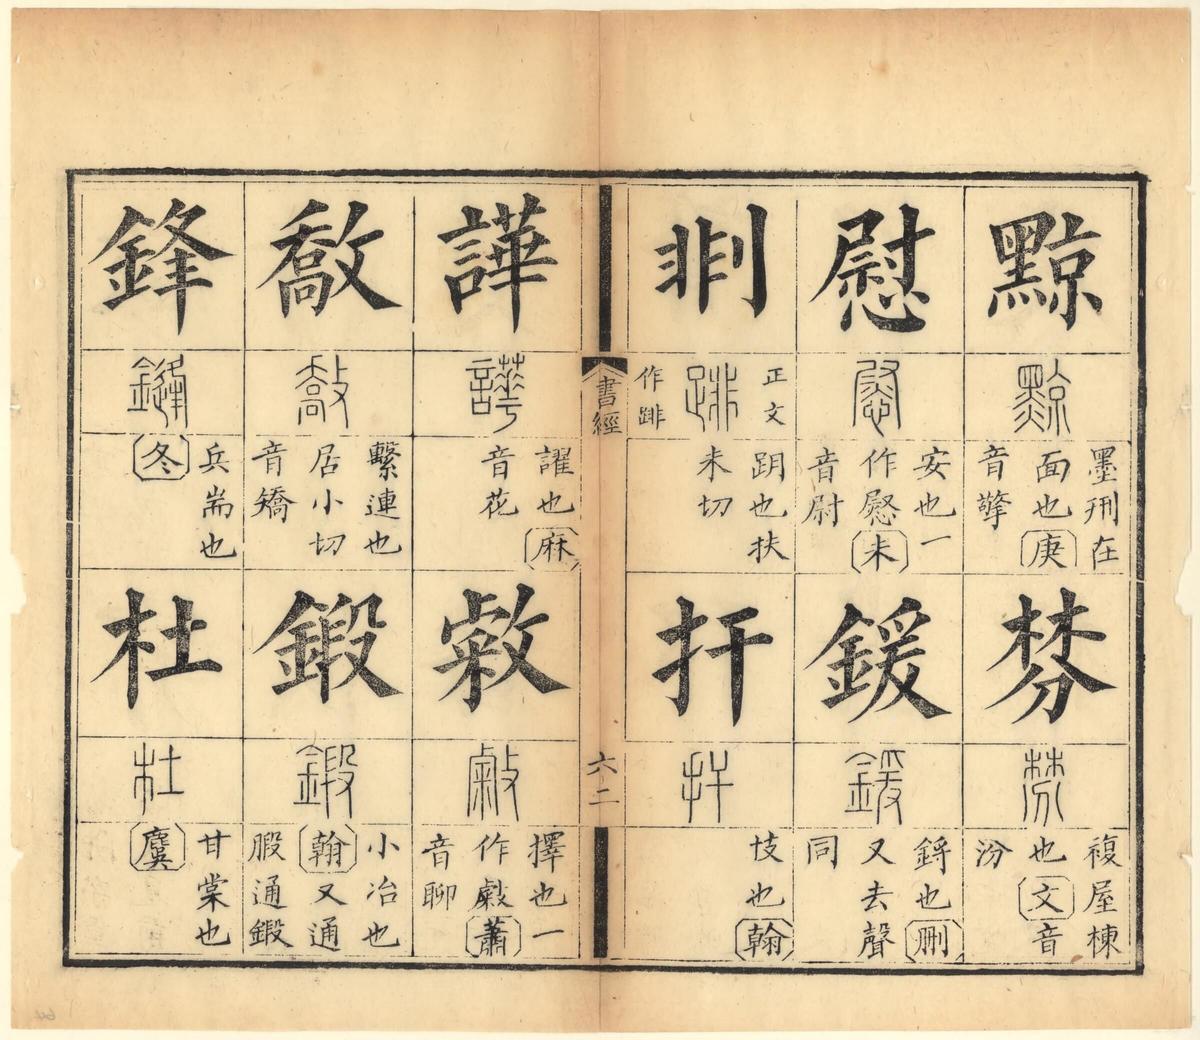 黥
黥
墨刑在
面也庚
音擎
慰
慰
安也一
作慰未
音尉
剕
正文
䠊
作䠊
跀也扶
未切
棼
棼
複屋棟
也文音
汾
鍰
鍰
鋝也刪
又去聲
同
扞
扞
忮也翰
書經
六二
譁
譁
讙也麻
音花
敽
敽
繫連也
居小切
音矯
鋒
鋒
兵耑也
冬
敹
敹
擇也一
作敹蕭
音聊
鍛
鍛
小冶也
翰又通
腶通鍛
杜
杜
甘棠也
麌